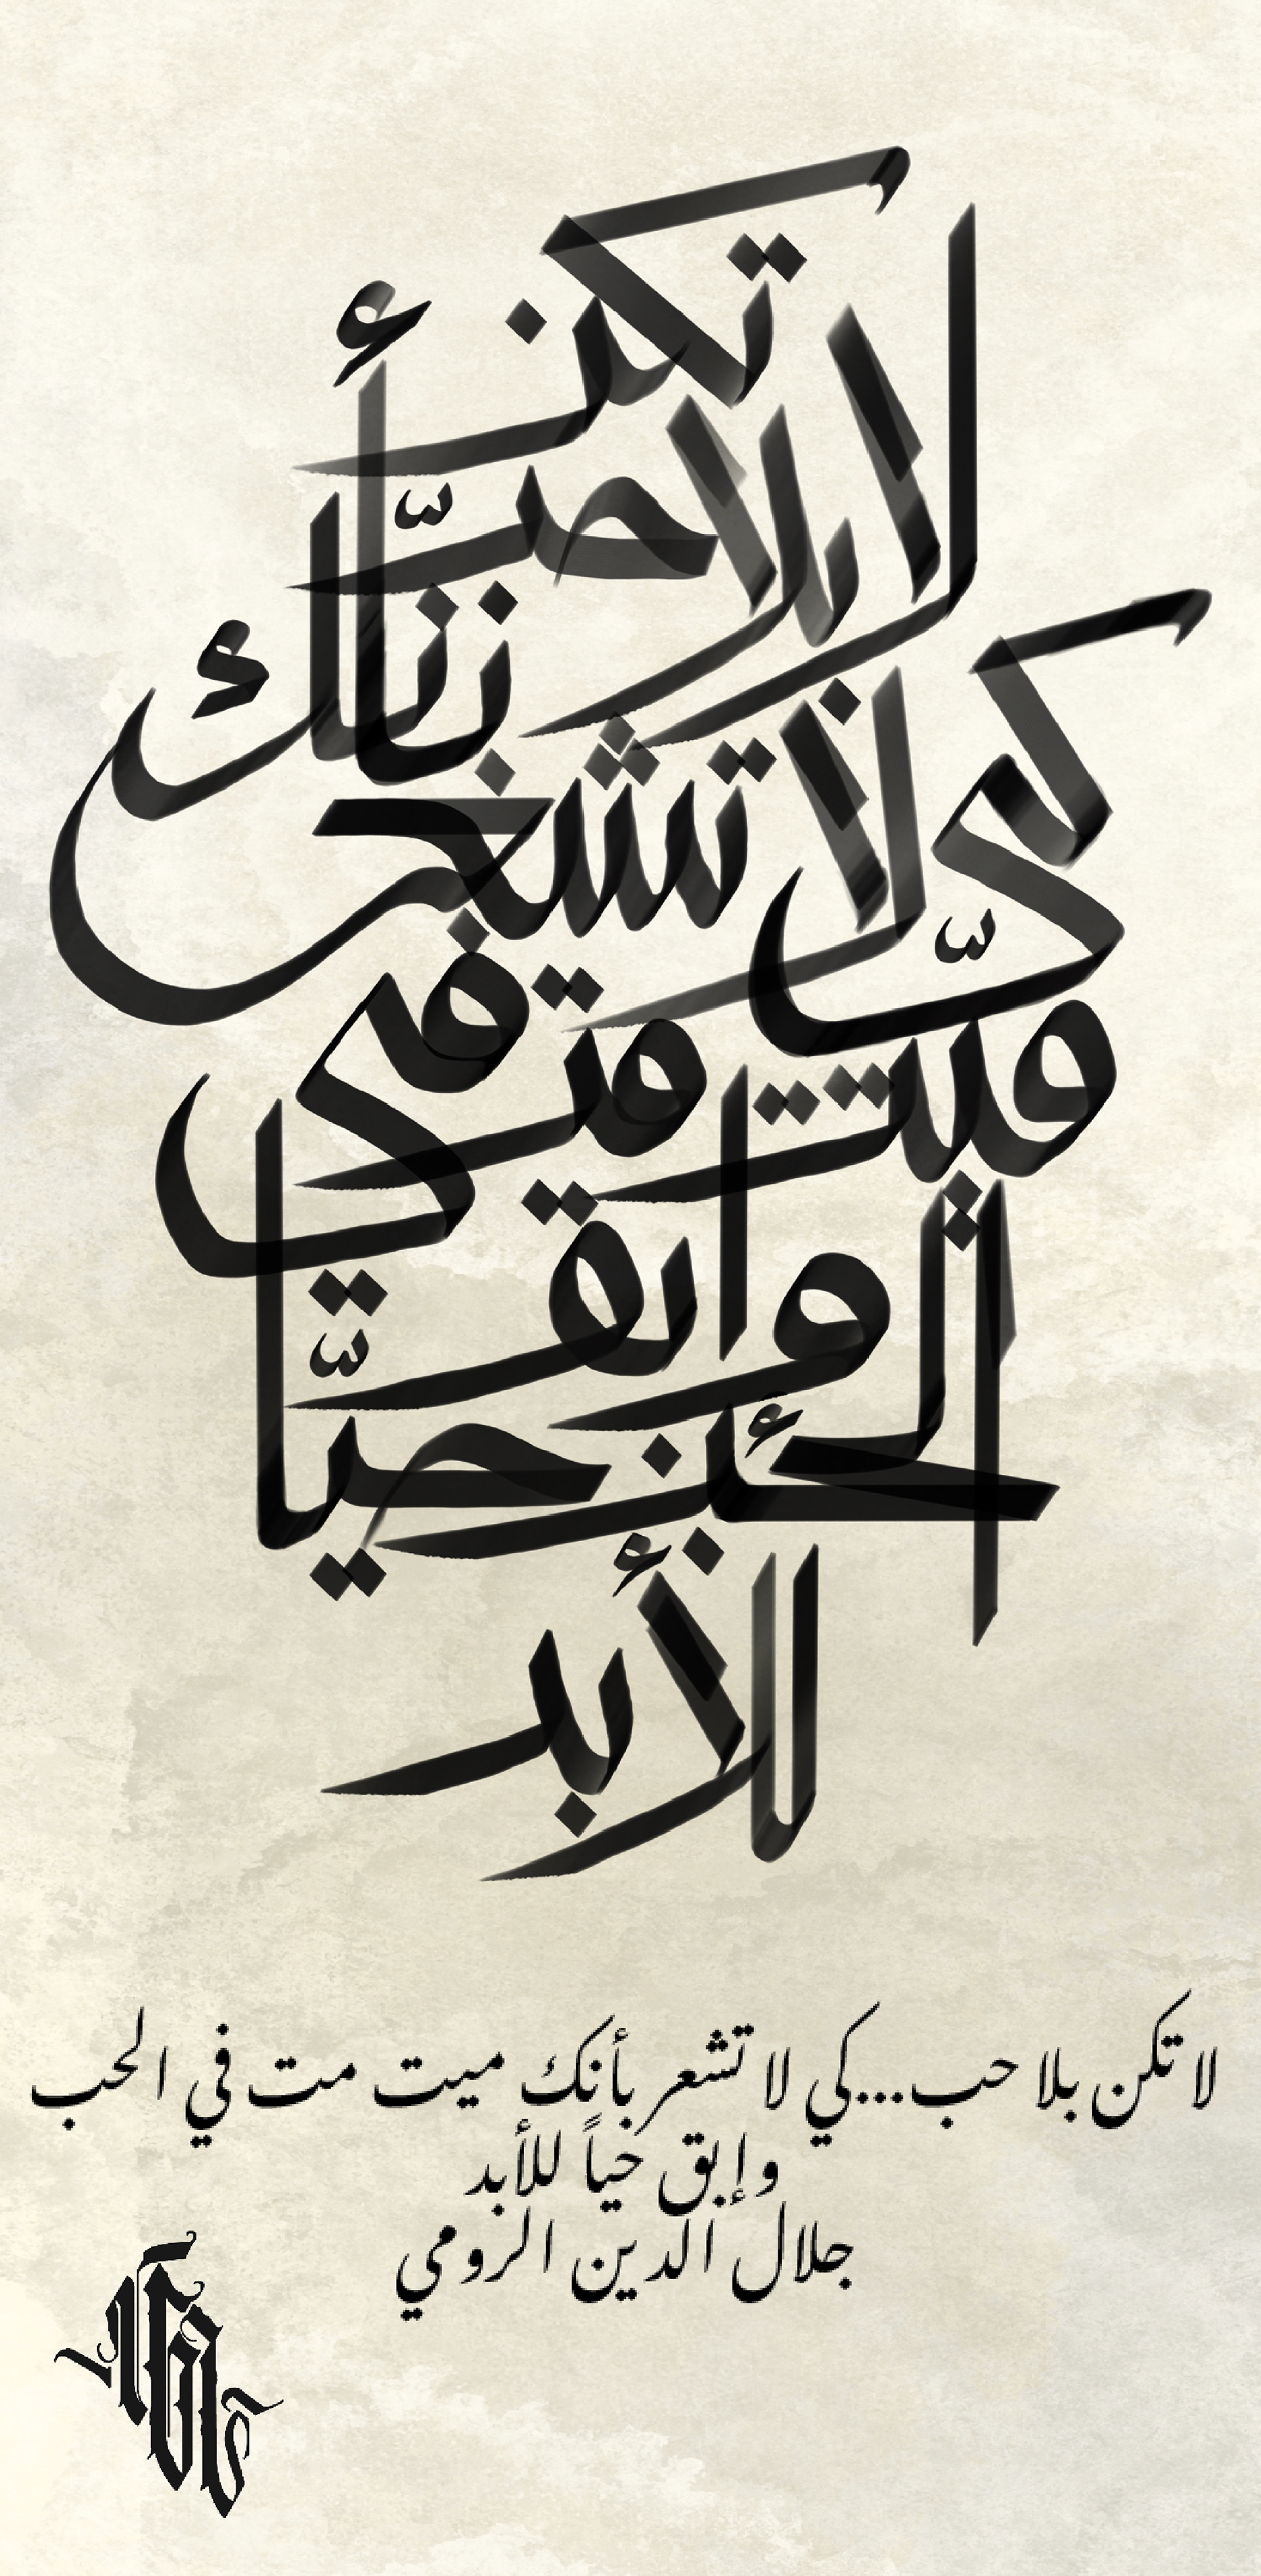 لا تكن
بلا حبّ
كي لا تشعر بأنك
ميّت مت في
الحب وابق حيّاً
للأبد
لا تكن بلا حب...كي لا تشعر بأنك ميت مت في الحب
وإبق حياً للأبد
جلال الدين الرومي